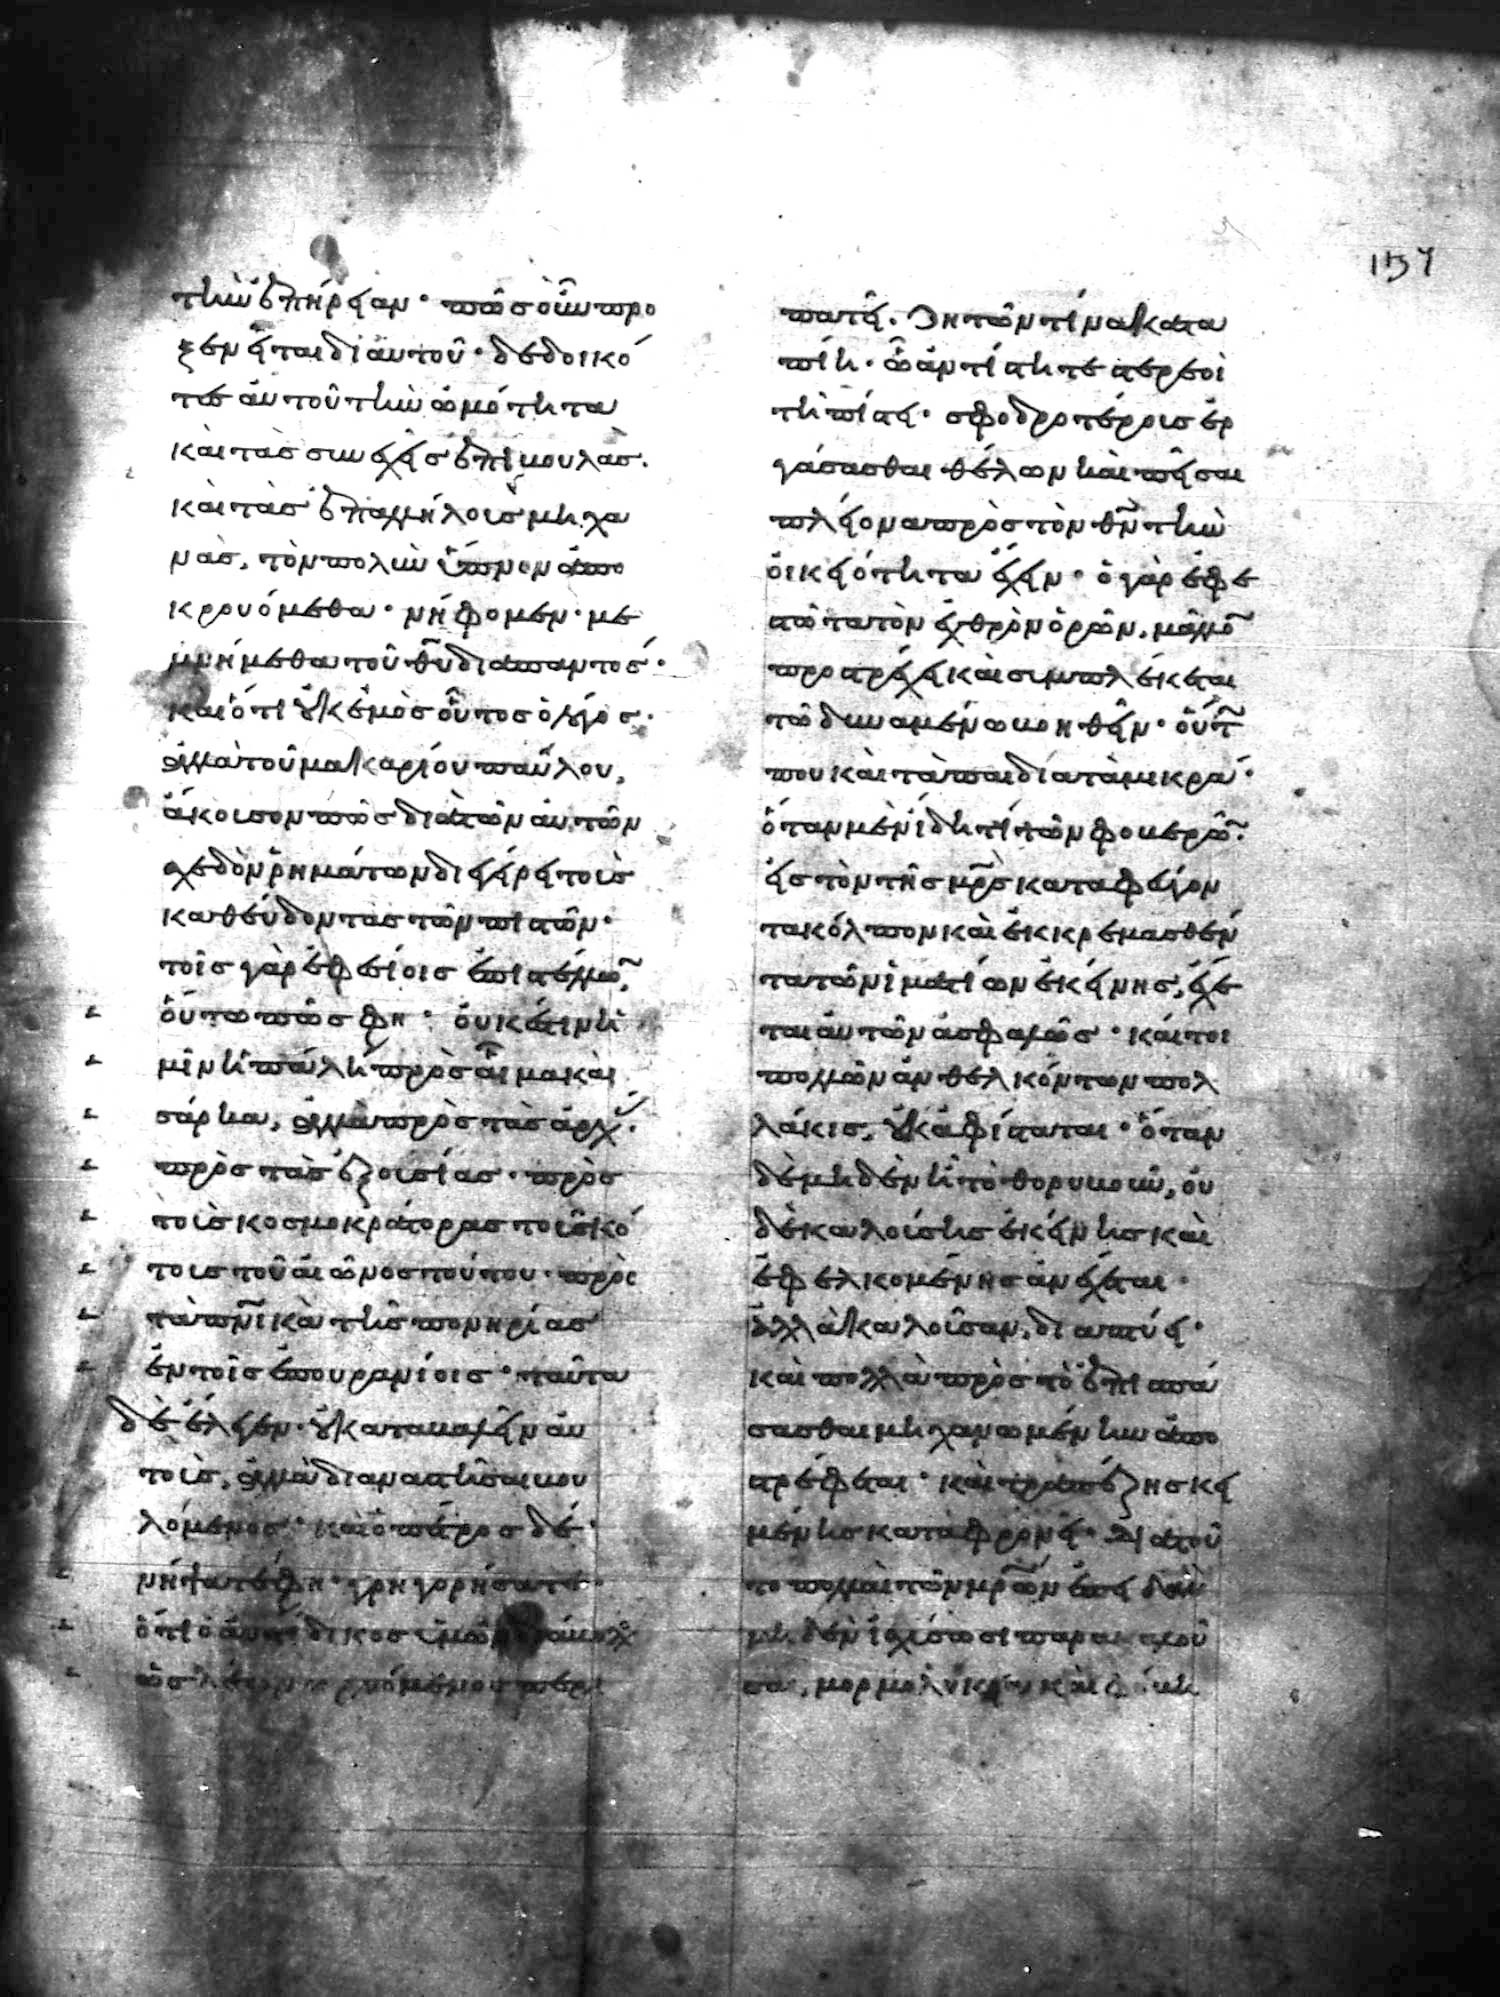 157
τὴν ἐπήρειαν· πῶς οὖν προ
ξενεῖται δι αὐτοῦ· δεδοικό
τες αὐτοῦ τὴν ὠμότητα
καὶ τὰς συνεχεῖς ἐπιβουλάς.
καὶ τὰς ἐπαλλήλους μηχα
νάς, τὸν πολὺν ὕπνον ἀπο
κρουόμεθα· νήφομεν· με
μνήμεθα τοῦ θῦ διαπαντός·
καὶ ὅτι οὐκ ἐμὸς οὗτος ὁ λόγος·
ἀλλὰ τοῦ μακαρίου παύλου,
ἄκουσον πῶς διὰ τῶν αὐτῶν
σχεδὸν ῥημάτων διεγείρει τοὺς
καθεύδοντας τῶν πιστῶν·
τοῖς γὰρ ἐφεσίοις ἐπιστέλλων,
οὕτω πώς φη· οὐκ ἔστιν ἡ
μῖν ἡ πάλη πρὸς αἷμα καὶ
σάρκα, ἀλλὰ πρὸς τὰς ἀρχ·
πρὸς τὰς ἐξουσίας· πρὸς
τοὺς κοσμοκράτορας τοῦ σκό
τους τοῦ αἰῶνος τούτου· πρὸς
τὰ πνικὰ τῆς πονηρίας
ἐν τοῖς ἐπουρανίοις· ταῦτα
δὲ ἔλεγεν· οὐ καταβαλεῖν αὐ
τοὺς, ἀλλὰ διαναστῆσαι βου
λόμενος· καὶ ὁ πέτρος δέ·
νήψατέ φη· γρηγορήσατε·
ὅτι ὁ ἀντίδικος ὑμῶν διάβολος
ὡς λέων ὠρυόμενος περι
πατεῖ· ζητῶν τίνα κατα
πίῃ· ᾧ ἀντίστητε στερεοὶ
τῇ πίστει· σφοδροτέρους ἐρ
γάσασθαι θέλων καὶ πεῖσαι
πλείονα πρὸς τὸν θν τὴν
οἰκειότητα ἔχειν· ὁ γὰρ ἐφε
στῶτα τὸν ἐχθρὸν ὁρῶν, μᾶλλον
προστρέχει καὶ συμπλέκεται
τῷ δυναμένω βοηθεῖν· οὕτω
που καὶ τὰ παιδία τὰ μικρά·
ὅταν μὲν ἴδη τί τῶν φοβερῶν·
εἰς τὸν τῆς μρς καταφεύγον
τα κόλπον καὶ ἐκκρεμασθέν
τα τῶν ἱματίων ἐκείνης, ἔχε
ται αὐτῶν ἀσφαλῶς· καίτοι
πολλῶν ἀνθελκόντων πολ
λάκις, οὐκ ἀφίσταται· ὅταν
δὲ μηδὲν ἦ τὸ θορυβοῦν, οὐ
δὲ καλούσης ἐκείνης καὶ
ἐφελκομένης ἀνέχεται·
ἀλλὰ καλοῦσαν, διαπτύει·
καὶ πολλὰ πρὸς τὸ ἐπισπά
σασθαι μηχανωμένην ἀπο
στρέφεται· καὶ τραπέζης κει
μένης καταφρονεῖ· διατοῦ
το πολλαὶ τῶν μρων ἐπειδὰν
μηδὲν ἰσχύσωσι παρακαλοῦ
σαι, μορμολύκεια καὶ